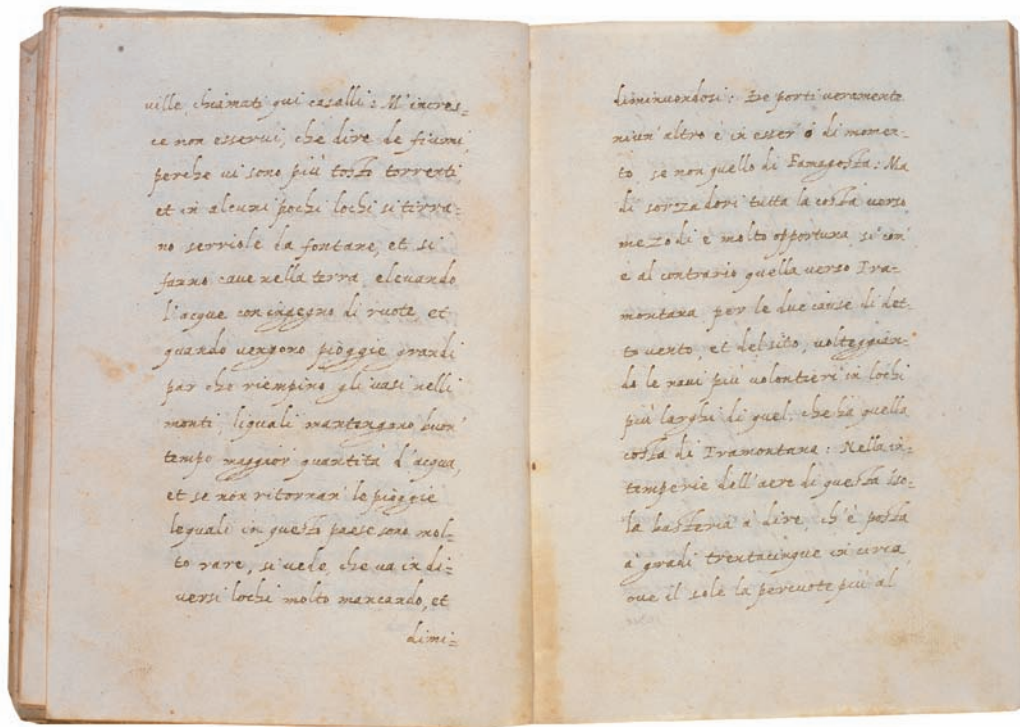 ville, chiamati qui casalli: M'incres=
ce non esservi, che dire de fiumi,
perche vi sono più tosto torrenti,
et in alcuni pochi lochi si tirra=
no serriole da fontane, et si
fanno cave nella terra, elevando
l'acque con ingegno di ruote, et
quando vengono pioggie grandi
par che riempino gli vasi nelli
monti, liquali mantengono buon
tempo maggior quantità d'acqua,
et se non ritornan' le pioggie
lequali in questo paese sono mol=
to rare, si vede, che va in di=
versi lochi molto mancando, et
dimi=
diminuendosi: De porti veramente
niun' altro è in esser' ò di momen=
to, se non quello di Famagosta: Ma
di sorzadori tutta la costa verso
mezodi è molto opportuna, si con'
è al contrario quella verso Tra=
montana per le due cause di det=
to vento, et del sito, volteggian=
do le navi più volontieri in lochi
più larghi di quel, che hà quella
costa di Tramontana: Nella in=
temperie dell'aere di questa Iso=
la basteria à dire, ch'è posta
à gradi trentacinque in circa,
ove il sole la percuote più al